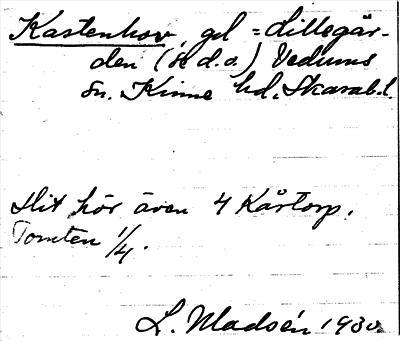 Kastenhov, gd = Lillegår-
den (se d.o.) Vedums
sn. Kinne hd. Skarab.l.
Hit hör även 4 Kårtorp.
Tomten 1/4.
L. Madsén 1930